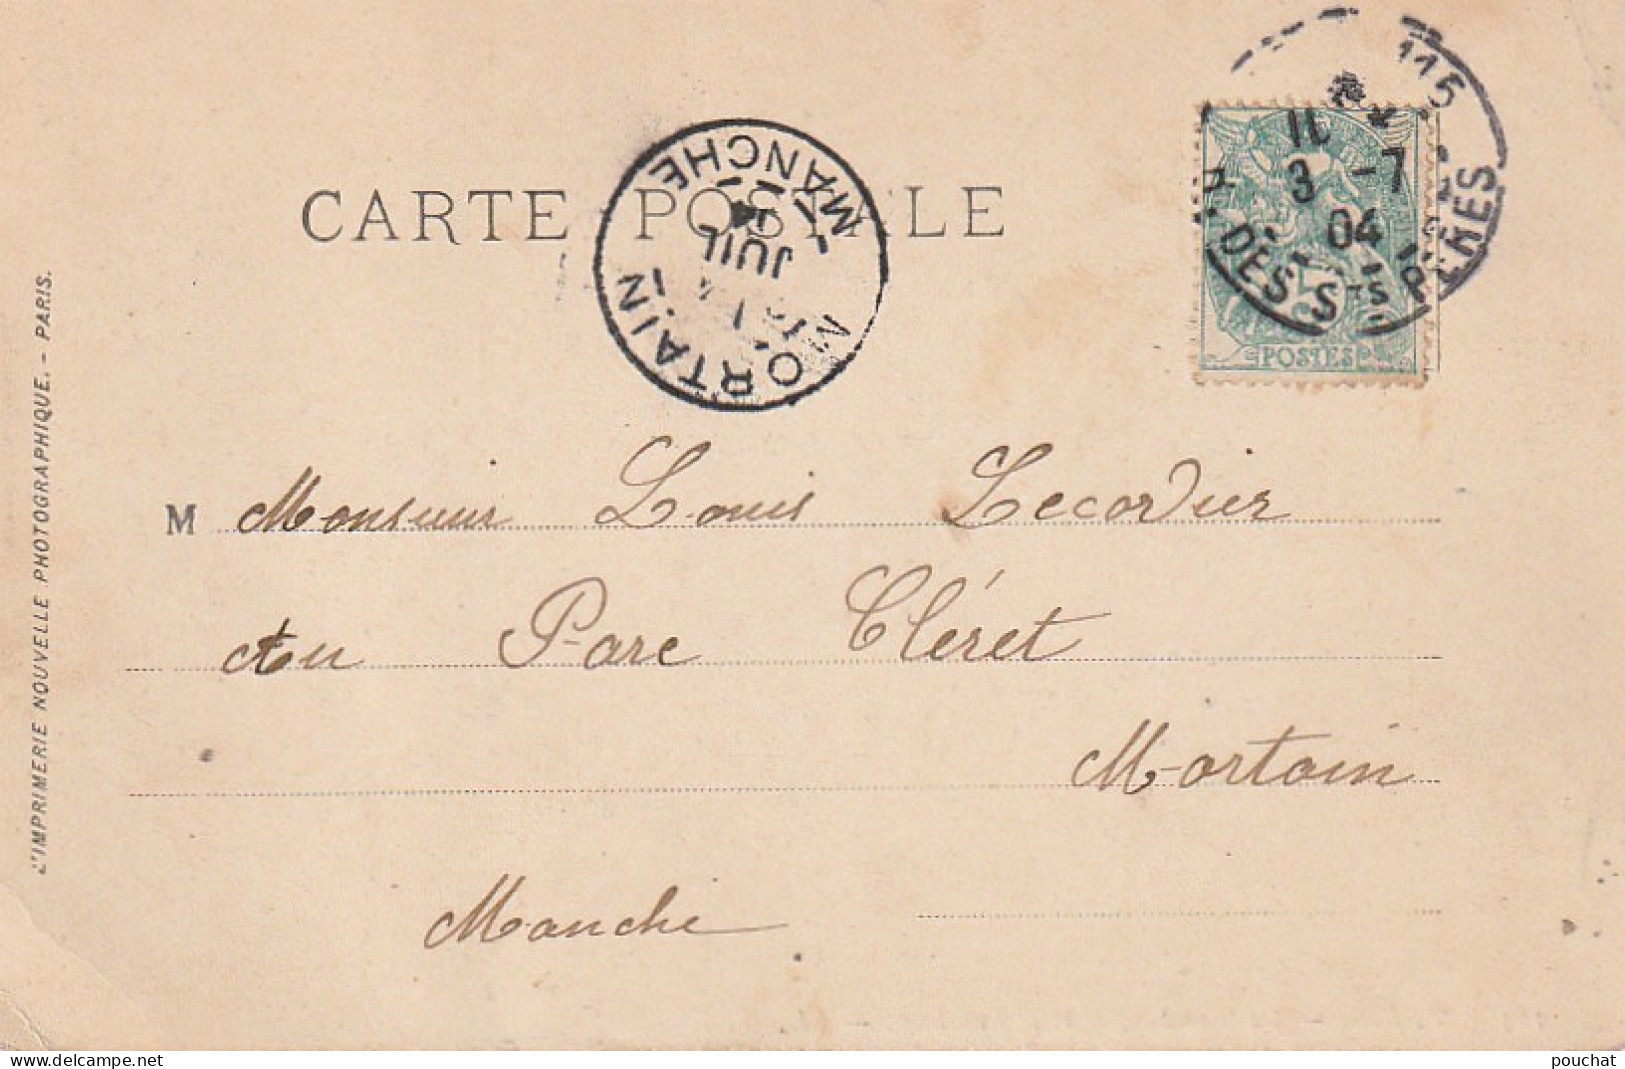 CARTE POSTALE
MORTAIN
MANCHE
JUIL
115
3 -7
04
R. DES STS PÈRES
5
POSTES
M Monsieur Louis Lecordier
Au Parc Cléret
Mortain
Manche
L'IMPRIMERIE NOUVELLE PHOTOGRAPHIQUE. - PARIS.
www.delcampe.net
pouchat